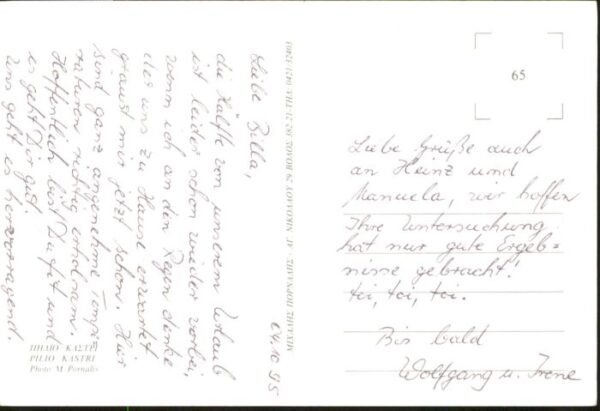 04.10.95
Liebe Bella,
die Hälfte von unserem Urlaub
ist leider schon wieder vorbei,
wenn ich an den Regen denke
der uns zu Hause erwartet
graust mir jetzt schon. Hier
sind ganz angenehme Tempe=
raturen richtig erholsam.
Hoffentlich bist Du fit und
es geht Dir gut.
uns geht es hervorragend.
ΠΗΛΙΟ ΚΑΣΤΡΙ
PILIO KASTRI
Photo M. Pornalis
65
Liebe Grüße auch
an Heinz und
Manuela, wir hoffen
Ihre Untersuchung
hat nur gute Ergeb=
nisse gebracht!
toi, toi, toi.
Bis bald
Wolfgang u. Irene